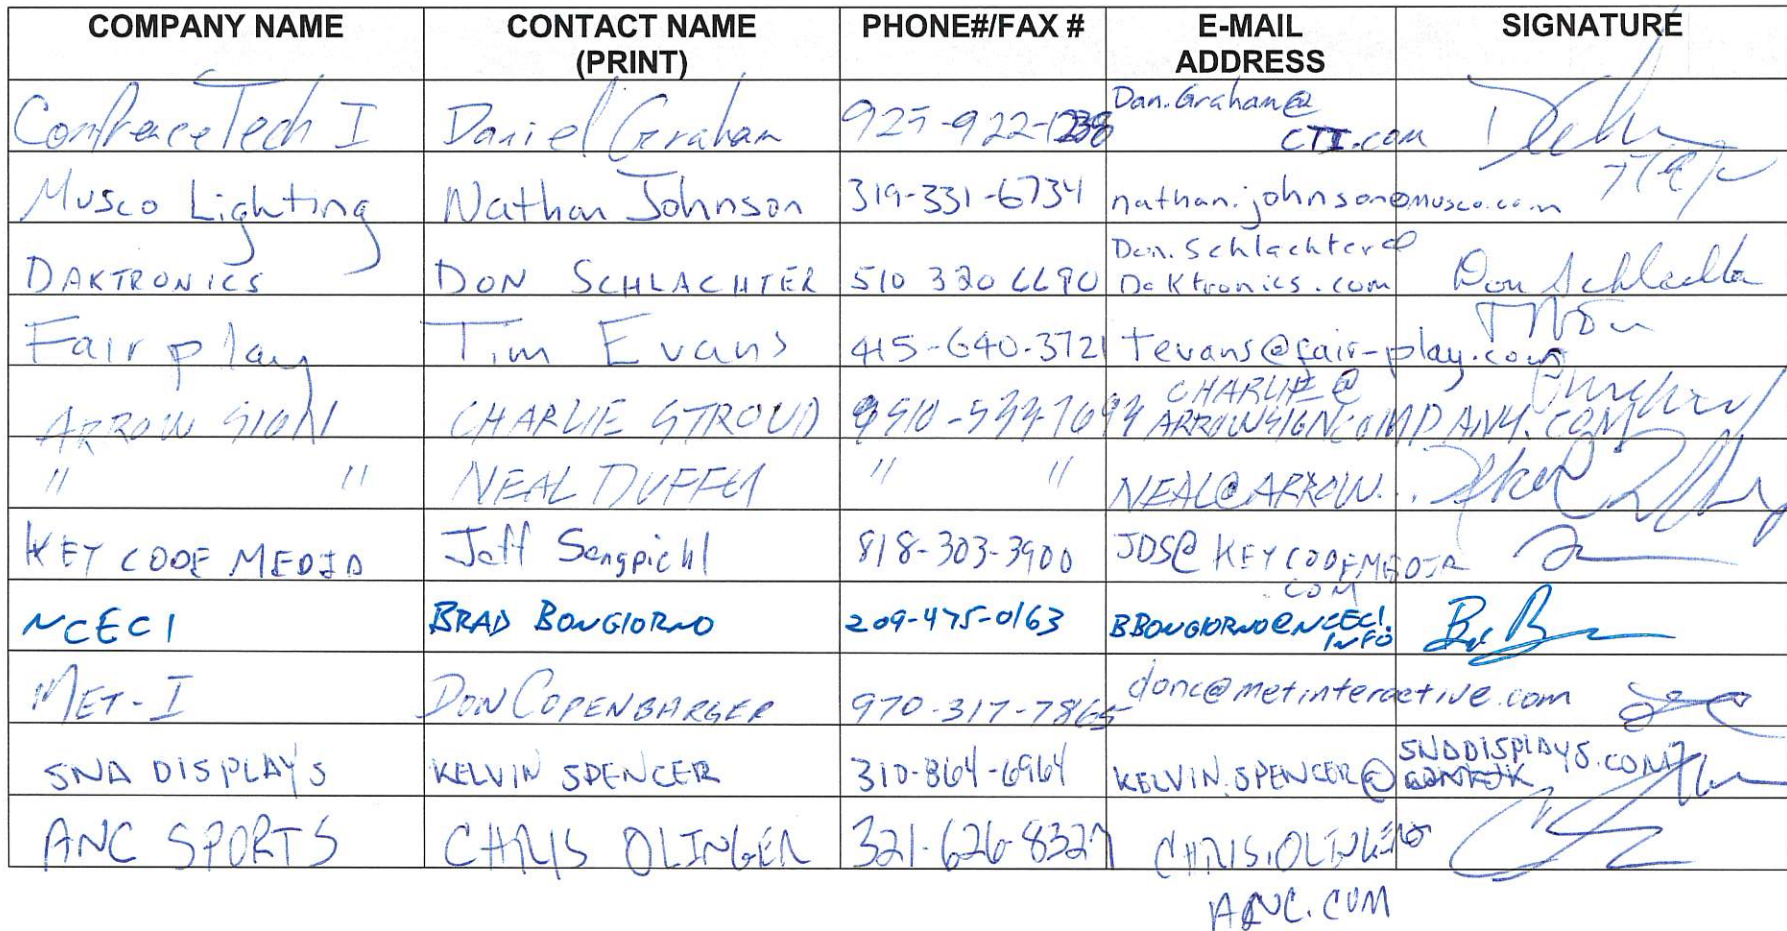 COMPANY NAME CONTACT NAME (PRINT) PHONE#/FAX # E-MAIL ADDRESS SIGNATURE
ConfrenceTech I Daniel Graham 925-922-1238 Dan.Graham@
CTI.com
Musco Lighting Nathan Johnson 319-331-6734 nathan.johnson@musco.com
DAKTRONICS DON SCHLACHTER 510 320 6690 Don.Schlachter@
Daktronics.com Don Schlachter
Fairplay Tim Evans 415-640-3721 tevans@fair-play.com
ARROW SIGN CHARLIE STROUD CHARLIE@
ARROWSIGNCOMPANY.COM
" " NEAL DUFFEY " " NEAL@ARROW...
KEY CODE MEDIA Jeff Sengpiehl 818-303-3900 JDS@KEYCODEMEDIA
.COM
NCECI BRAD BONGIORNO 209-475-0163 BBONGIORNO@NCECI.
INFO
MET-I DON COPENBARGER 970-317-7865 donc@metinteractive.com
SNA DISPLAYS KELVIN SPENCER 310-864-6964 KELVIN.SPENCER@ SNADISPLAYS.COM
ANC SPORTS CHRIS OLINGER 321-626-8327 CHRIS.OLINGER@
ANC.COM